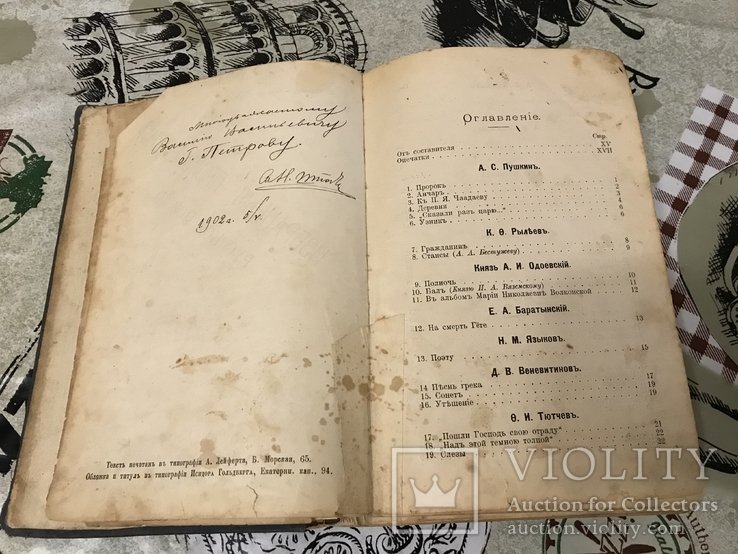 Многоуважаемому
Василію Васильевичу
Г. Петрову.
1902 г. 5/V.
Текстъ печатанъ въ типографіи А. Лейферта, Б. Морская, 65.
Обложка и титулъ въ типографіи Исидора Гольдберга, Екатерин. кан., 94.
Оглавленіе.
Стр.
Отъ составителя XV
Опечатки XVII
А. С. Пушкинъ.
1. Пророкъ 1
2. Анчаръ 2
3. Къ П. Я. Чаадаеву 3
4. Деревня 4
5. „Сказали разъ царю..." 6
6. Узникъ 6
К. Ѳ. Рылѣевъ.
7. Гражданинъ 8
8. Стансы (А. А. Бестужеву) 9
Князь А. И. Одоевскій.
9. Полночь 10
10. Балъ (Князю П. А. Вяземскому) 11
11. Въ альбомъ Маріи Николаевнѣ Волконской 12
Е. А. Баратынскій.
12. На смерть Гёте 13
Н. М. Языковъ.
13. Поэту 15
Д. В. Веневитиновъ.
14 Пѣснь грека 17
15. Сонетъ 19
16. Утѣшеніе 19
Ѳ. И. Тютчевъ.
17. „Пошли Господь свою отраду" 21
18. „Надъ этой темною толпой" 22
19. Слезы 22
VIOLITY
Auction for Collectors
auction.violity.com